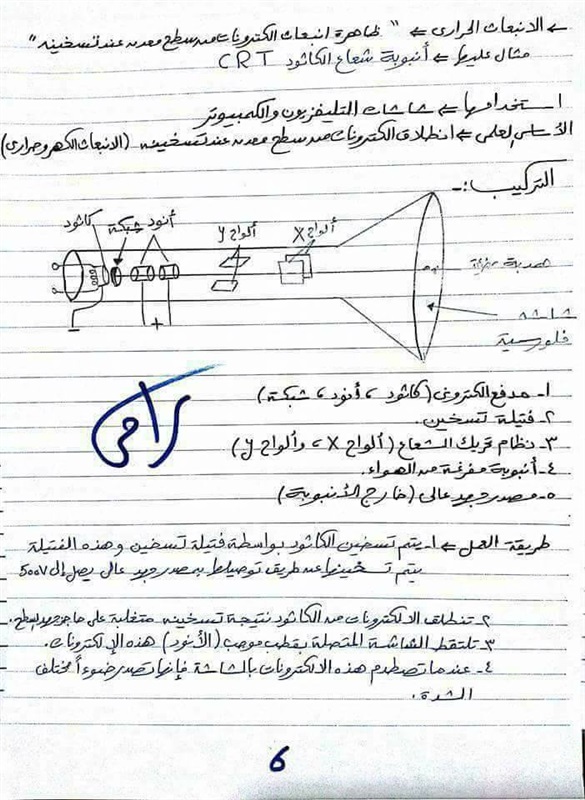 ← الانبعاث الحرارى ← " ظاهرة انبعاث الكترونات من سطح معدن عند تسخينه "
مثال عليها ← أنبوبة شعاع الكاثود CRT
استخدامها ← شاشات التليفزيون والكمبيوتر
الأساس العلمى ← انطلاق الكترونات من سطح معدن عند تسخينه (الانبعاث الكهروحرارى)
التركيب :-
كاثود شبكة أنود ألواح y ألواح X
شاشة
فلورسية
١- مدفع الكترونى (كاثود ، أنود ، شبكة)
٢- فتيلة تسخين.
٣- نظام تحريك الشعاع (ألواح X ، وألواح y)
٤- أنبوبة مفرغة من الهواء.
٥- مصدر جهد عالى (خارج الأنبوبة)
رامى
طريقة العمل ← ١- يتم تسخين الكاثود بواسطة فتيلة تسخين وهذه الفتيلة
يتم تسخينها عن طريق توصيلها بمصدر جهد عالى يصل إلى 500V
٢- تنطلق الالكترونات من الكاثود نتيجة تسخينه متغلبة على حاجز جهد السطح.
٣- تلتقط الشاشة المتصلة بقطب موجب (الأنود) هذه الإلكترونات.
٤- عندما تصطدم هذه الالكترونات بالشاشة فإنها تصدر ضوءاً مختلف
الشدة.
6